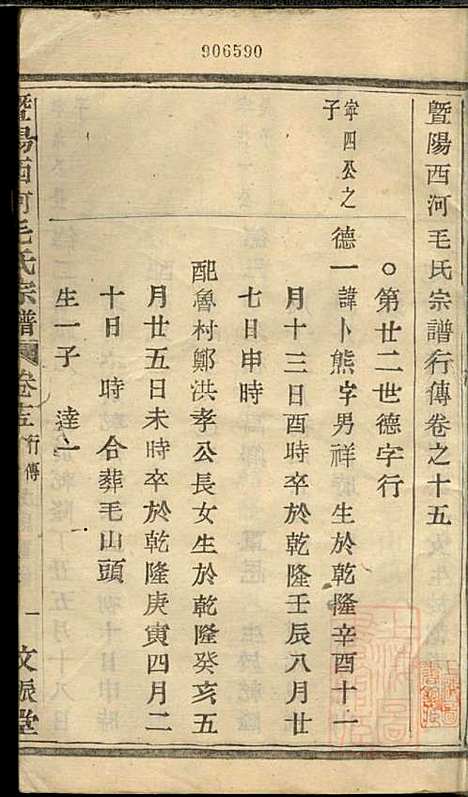 906590
暨陽西河毛氏宗譜行傳卷之十五
○第廿二世德字行
寧四公之
子
德一諱卜熊字男祥 生於乾隆辛酉十一
月十三日酉時卒於乾隆壬辰八月廿
七日申時
配魯村鄭洪孝公長女生於乾隆癸亥五
月廿五日未時卒於乾隆庚寅四月二
十日 時合葬毛山頭
生一子 達一
暨陽西河毛氏宗譜 卷 行傳 一 文振堂